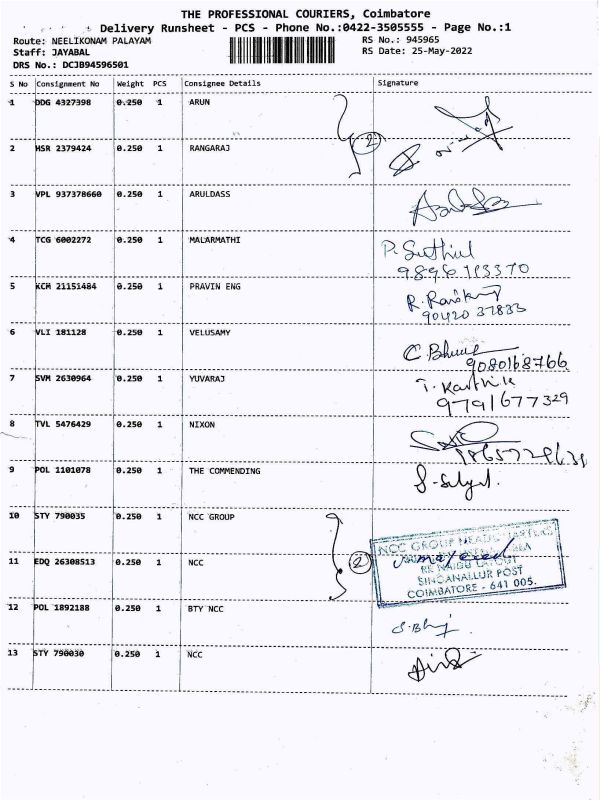 THE PROFESSIONAL COURIERS, Coimbatore
Delivery Runsheet - PCS - Phone No.:0422-3505555 - Page No.:1
Route: NEELIKONAM PALAYAM RS No.: 945965
Staff: JAYABAL RS Date: 25-May-2022
DRS No.: DCJB94596501
S No Consignment No Weight PCS Consignee Details Signature
1 DDG 4327398 0.250 1 ARUN
2 HSR 2379424 0.250 1 RANGARAJ
2
3 VPL 937378660 0.250 1 ARULDASS
4 TCG 6002272 0.250 1 MALARMATHI P. Suthil
5 KCM 21151484 0.250 1 PRAVIN ENG
90420 37833
6 VLI 181128 0.250 1 VELUSAMY
9080168766
7 SVM 2630964 0.250 1 YUVARAJ T. Karthik
9791677329
8 TVL 5476429 0.250 1 NIXON
9 POL 1101078 0.250 1 THE COMMENDING
10 STY 790035 0.250 1 NCC GROUP
NCC GROUP HEADQUARTERS
11 EDQ 26308513 0.250 1 NCC 2
SINGANALLUR POST
COIMBATORE - 641 005.
12 POL 1892188 0.250 1 BTY NCC
13 STY 790030 0.250 1 NCC